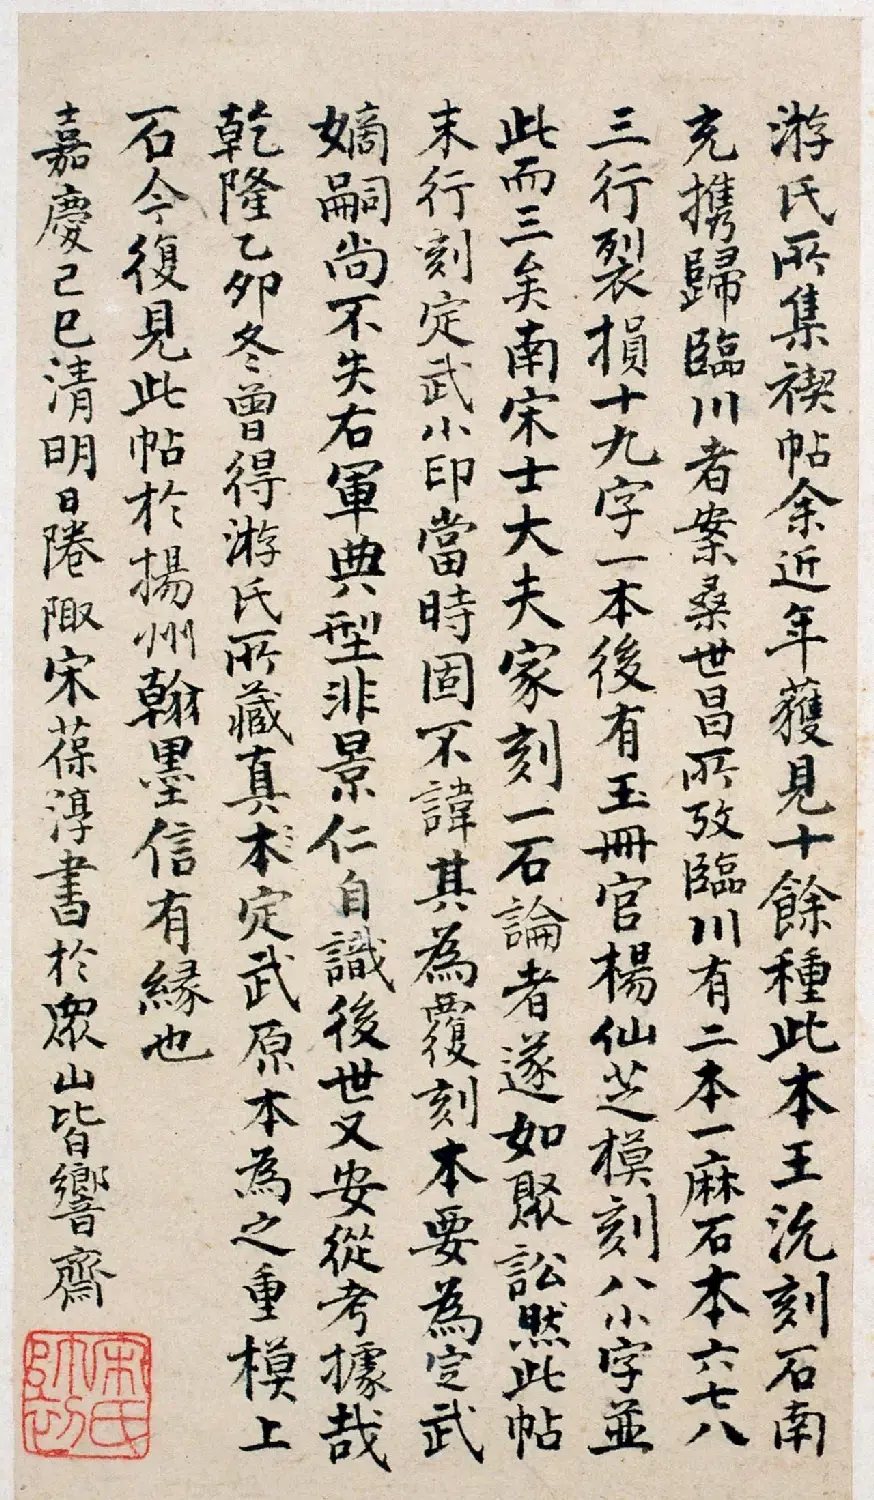 游氏所集禊帖余近年獲見十餘種此本王沇刻石南
充攜歸臨川者案桑世昌所攷臨川有二本一麻石本六七八
三行裂損十九字一本後有玉冊官楊仙芝模刻八小字並
此而三矣南宋士大夫家刻一石論者遂如聚訟然此帖
末行刻定武小印當時固不諱其為覆刻本要為定武
嫡嗣尚不失右軍典型非景仁自識後世又安從考據哉
乾隆乙卯冬曾得游氏所藏真本定武原本為之重模上
石今復見此帖於揚州翰墨信有緣也
嘉慶己巳清明日陭陬宋葆淳書於眾山皆響齋
宋氏帥初